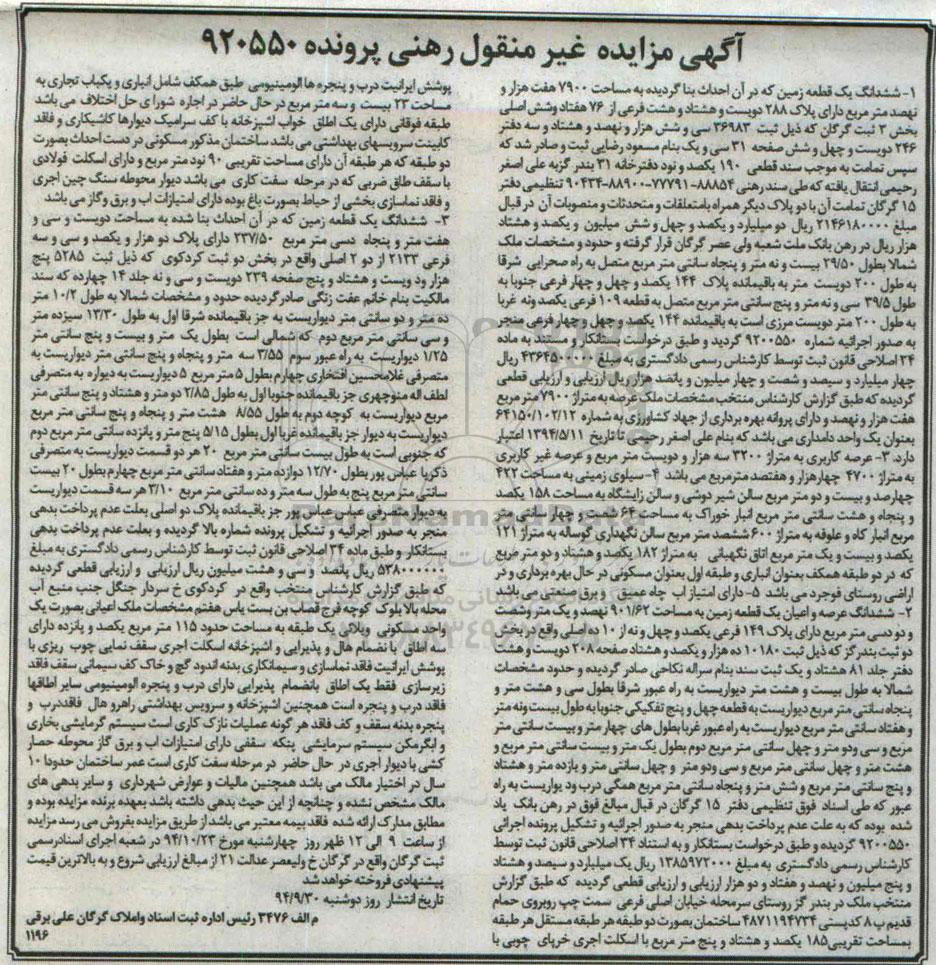 آگهی مزایده غیر منقول رهنی پرونده ۹۲۰۵۵۰
۱- ششدانگ یک قطعه زمین که در آن احداث بنا گردیده به مساحت ۷۹۰۰ هفت هزار و
نهصد متر مربع دارای پلاک ۲۸۸ دویست و هشتاد و هشت فرعی از ۷۶ هفتاد وشش اصلی
بخش ۳ ثبت گرگان که ذیل ثبت ۳۶۹۸۳ سی و شش هزار و نهصد و هشتاد و سه دفتر
۲۴۶ دویست و چهل و شش صفحه ۳۱ سی و یک بنام مسعود رضایی ثبت و صادر شد که
سپس تمامت به موجب سند قطعی ۱۹۰ یکصد و نود دفترخانه ۳۱ بندر گزبه علی اصغر
رحیمی انتقال یافته که طی سند رهنی ۸۸۸۵۴-۷۷۷۹۱-۸۸۹۰۰-۹۰۴۳۴ تنظیمی دفتر
۱۵ گرگان تمامت آن با دو پلاک دیگر همراه بامتعلقات و متحدثات و منصوبات آن در قبال
مبلغ ۲۱۴۶۱۸۰۰۰۰ ریال دو میلیارد و یکصد و چهل و شش میلیون و یکصد و هشتاد
هزار ریال در رهن بانک ملت شعبه ولی عصر گرگان قرار گرفته و حدود و مشخصات ملک
شمالا بطول ۲۹/۵۰ بیست و نه متر و پنجاه سانتی متر مربع متصل به راه صحرایی شرقا
به طول ۲۰۰ دویست متر به باقیمانده پلاک ۱۴۴ یکصد و چهل و چهار فرعی جنوبا به
طول ۳۹/۵ سی و نه متر و پنج سانتی متر مربع متصل به قطعه ۱۰۹ فرعی یکصد ونه غربا
به طول ۲۰۰ متر دویست مرزی است به باقیمانده ۱۴۴ یکصد و چهل و چهار فرعی منجر
به صدور اجرائیه شماره ۹۲۰۰۵۵۰ گردید و طبق درخواست بستانکار و مستند به ماده
۳۴ اصلاحی قانون ثبت توسط کارشناس رسمی دادگستری به مبلغ ۴۳۶۴۵۰۰۰۰۰ ریال
چهار میلیارد و سیصد و شصت و چهار میلیون و پانصد هزار ریال ارزیابی و ارزیابی قطعی
گردیده که طبق گزارش کارشناس منتخب مشخصات ملک عرصه به متراژ ۷۹۰۰ متر مربع
هفت هزار و نهصد و دارای پروانه بهره برداری از جهاد کشاورزی به شماره ۶۴۱۵۰/۱۰۲/۱۲
بعنوان یک واحد دامداری می باشد که بنام علی اصغر رحیمی تا تاریخ ۱۳۹۴/۵/۱۱ اعتبار
دارد. ۳- عرصه کاربری به متراژ ۳۲۰۰ سه هزار و دویست متر مربع و عرصه غیر کاربری
به متراژ ۴۷۰۰ چهارهزار و هفتصد مترمربع می باشد ۴- سیلوی زمینی به مساحت ۴۲۲
چهارصد و بیست و دو متر مربع سالن شیر دوشی و سالن زایشگاه به مساحت ۱۵۸ یکصد
و پنجاه و هشت سانتی متر مربع انبار خوراک به مساحت ۶۴ شصت و چهار سانتی متر
مربع انبار کاه و علوفه به متراژ ۶۰۰ ششصد متر مربع سالن نگهداری گوساله به متراژ ۱۲۱
یکصد و بیست و یک متر مربع اتاق نگهبانی به متراژ ۱۸۲ یکصد و هشتاد و دو متر مربع
که در دو طبقه همکف بعنوان انباری و طبقه اول بعنوان مسکونی در حال بهره برداری و در
اراضی روستای فوجرد می باشد ۵- دارای امتیاز اب چاه عمیق و برق صنعتی می باشد
۲- ششدانگ عرصه و اعیان یک قطعه زمین به مساحت ۹۰۱/۶۲ نهصد و یک متر وشصت
و دو دسی متر مربع دارای پلاک ۱۴۹ فرعی یکصد و چهل و نه از ۱۰ ده اصلی واقع در بخش
دو ثبت بندر گز که ذیل ثبت ۱۰۱۸۰ ده هزار و یکصد و هشتاد صفحه ۲۰۸ دویست و هشت
دفتر جلد ۸۱ هشتاد و یک ثبت سند بنام سراله نکاحی صادر گردیده و حدود مشخصات
شمالا به طول بیست و هشت متر دیواریست به راه عبور شرقا بطول سی و هشت متر و
پنجاه سانتی متر مربع دیواریست به قطعه چهل و پنج تفکیکی جنوبا به طول بیست ونه متر
و هفتاد سانتی متر مربع دیواریست به راه عبور غربا بطول های چهار متر و بیست سانتی متر
مربع و سی ودو متر و چهل سانتی متر مربع دوم بطول یک متر و بیست سانتی متر مربع و
هشت متر و چهل سانتی متر مربع و سی ودو متر و چهل سانتی متر و یازده متر و هشتاد
و پنج سانتی متر مربع و شش متر و پنجاه سانتی متر مربع همگی درب ود یواریست به راه
عبور که طی اسناد فوق تنظیمی دفتر ۱۵ گرگان در قبال مبالغ فوق در رهن بانک یاد
شده بوده که به علت عدم پرداخت بدهی منجر به صدور اجرائیه و تشکیل پرونده اجرائی
۹۲۰۰۵۵۰ گردیده و طبق درخواست بستانکار و به استناد ۳۴ اصلاحی قانون ثبت توسط
کارشناس رسمی دادگستری به مبلغ ۱۳۸۵۹۷۲۰۰۰ ریال یک میلیارد و سیصد و هشتاد
و پنج میلیون و نهصد و هفتاد و دو هزار ارزیابی و ارزیابی قطعی گردیده که طبق گزارش
منتخب ملک در بندر گز روستای سرمحله خیابان اصلی فرعی سمت چپ روبروی حمام
قدیم پ۸ کدپستی ۴۸۷۱۱۹۴۷۳۴ ساختمان بصورت دو طبقه هر طبقه مستقل هر طبقه
بمساحت تقریبی۱۸۵ یکصد و هشتاد و پنج متر مربع با اسکلت اجری خرپای چوبی با
پوشش ایرانیت درب و پنجره ها الومینیومی طبق همکف شامل انباری و یکباب تجاری به
مساحت ۲۳ بیست و سه متر مربع در حال حاضر در اجاره شورا ی حل اختلاف می باشد
طبقه فوقانی دارای یک اطاق خواب اشپزخانه با کف سرامیک دیوارها کاشیکاری و فاقد
کابینت سرویسهای بهداشتی می باشد ساختمان مذکور مسکونی در دست احداث بصورت
دو طبقه که هر طبقه آن دارای مساحت تقریبی ۹۰ نود متر مربع و دارای اسکلت فولادی
با سقف طاق ضربی که در مرحله سفت کاری می باشد دیوار محوطه سنگ چین اجری
و فاقد نماسازی بخشی از حیاط بصورت باغ بوده دارای امتیازات اب و برق وگاز می باشد
۳- ششدانگ یک قطعه زمین که در آن احداث بنا شده به مساحت دویست و سی و
هفت متر و پنجاه دسی متر مربع ۲۳۷/۵۰ دارای پلاک دو هزار و یکصد و سی و سه
فرعی ۲۱۳۳ از دو ۲ اصلی واقع در بخش دو ثبت کردکوی که ذیل ثبت ۵۲۸۵ پنج
هزار ود ویست و هشتاد و پنج صفحه ۲۳۹ دویست و سی و نه جلد ۱۴ چهارده که سند
مالکیت بنام خانم عفت زنگی صادر گردیده حدود و مشخصات شمالا به طول ۱۰/۲ متر
ده متر و دو سانتی متر دیواریست به جز باقیمانده شرقا اول به طول ۱۳/۳۰ سیزده متر
و سی سانتی متر مربع دوم که شمالی است بطول یک متر و بیست و پنج سانتی متر
۱/۲۵ دیواریست به راه عبور سوم ۳/۵۵ سه متر و پنجاه و پنج سانتی متر دیواریست به
متصرفی غلامحسین افتخاری چهارم بطول ۵ متر مربع ۵ دیواریست به دیواره به متصرفی
لطف اله منوچهری جز باقیمانده جنوبا اول به طول ۲/۸۵ دو متر و هشتاد و پنج سانتی متر
مربع دیواریست به کوچه دوم به طول ۸/۵۵ هشت متر و پنجاه و پنج سانتی متر مربع
دیواریست به دیوار جز باقیمانده غربا اول بطول ۵/۱۵ پنج متر و پانزده سانتی متر مربع دوم
که جنوبی است به طول بیست سانتی متر مربع ۲۰ هر دو قسمت دیواریست به متصرفی
ذکریا عباس پور بطول ۱۲/۷۰ دوازده متر و هفتاد سانتی متر مربع چهارم بطول ۲۰ بیست
سانتی متر مربع پنج به طول سه متر و ده سانتی متر مربع ۳/۱۰ هر سه قسمت دیواریست
به دیوار متصرفی عباس عباس پور جز باقیمانده پلاک دو اصلی بعلت عدم پرداخت بدهی
منجر به صدور اجرائیه و تشکیل پرونده شماره بالا گردیده و بعلت عدم پرداخت بدهی
بستانکار و طبق ماده ۳۴ اصلاحی قانون ثبت توسط کارشناس رسمی دادگستری به مبلغ
۵۳۸۰۰۰۰۰۰ ریال پانصد و سی و هشت میلیون ریال ارزیابی و ارزیابی قطعی گردیده
که طبق گزارش کارشناس منتخب واقع در کردکوی خ سردار جنگل جنب منبع آب
محله بالا بلوک کوچه فرج قصاب بن بست یاس هفتم مشخصات ملک اعیانی بصورت یک
واحد مسکونی ویلائی یک طبقه به مساحت حدود ۱۱۵ متر مربع یکصد و پانزده دارای
سه اطاق با نضمام هال و پذیرایی و اشپزخانه اسکلت اجری سقف نمایی چوب ریزی با
پوشش ایرانیت فاقد نماسازی و سیمانکاری بدنه اندود گچ و خاک کف سیمانی سقف فاقد
زیرسازی فقط یک اطاق بانضمام پذیرایی دارای درب و پنجره الومینیومی سایر اطاقها
فاقد درب و پنجره است همچنین اشپزخانه و سرویس بهداشتی راهرو هال فاقددرب و
پنجره بدنه سقف و کف فاقد هر گونه عملیات نازک کاری است سیستم گرمایشی بخاری
و ابگرمکن سیستم سرمایشی پنکه سقفی دارای امتیازات اب و برق گاز محوطه حصار
کشی با دیوار اجری در حال حاضر در مرحله سفت کاری است عمر ساختمان حدودا ۱۰
سال در اختیار مالک می باشد همچنین مالیات و عوارض شهرداری و سایر بدهی های
مالک مشخص نشده و چنانچه از این حیث بدهی داشته باشد بعهده برنده مزایده بوده و
مطابق مدارک ارائه شده فاقد بیمه معتبر می باشد از طریق مزایده بفروش می رسد مزایده
از ساعت ۹ الی ۱۲ ظهر روز چهارشنبه مورخ ۹۴/۱۰/۲۳ در شعبه اجرای اسنادرسمی
ثبت گرگان واقع در گرگان خ ولیعصر عدالت ۲۱ از مبالغ ارزیابی شروع و به بالاترین قیمت
پیشنهادی فروخته خواهد شد
تاریخ انتشار روز دوشنبه ۹۴/۹/۳۰
م الف ۳۴۷۶ رئیس اداره ثبت اسناد واملاک گرگان علی برقی
۱۱۹۶